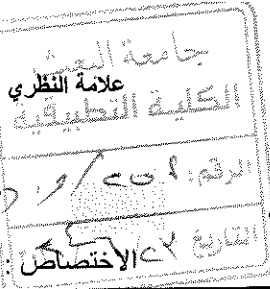 جامعة البعث
علامة النظري
الكلية التطبيقية
الرقم:
التاريخ
الاختصاص :